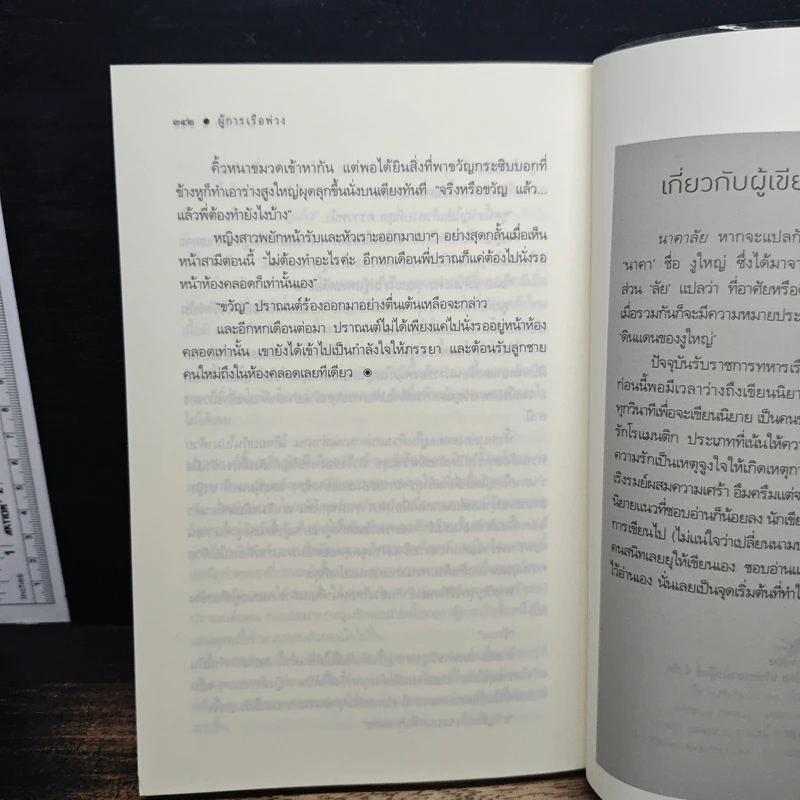 ๓๔๒ ● ผู้การเรือพ่วง
คิ้วหนาขมวดเข้าหากัน แต่พอได้ยินสิ่งที่พาขวัญกระซิบบอกที่
ข้างหูก็ทำเอาร่างสูงใหญ่ผุดลุกขึ้นนั่งบนเตียงทันที “จริงหรือขวัญ แล้ว...
แล้วพี่ต้องทำยังไงบ้าง”
หญิงสาวพยักหน้ารับและหัวเราะออกมาเบาๆ อย่างสุดกลั้นเมื่อเห็น
หน้าสามีตอนนี้ “ไม่ต้องทำอะไรค่ะ อีกหกเดือนพี่ปราณก็แค่ต้องไปนั่งรอ
หน้าห้องคลอดก็เท่านั้นเอง”
“ขวัญ” ปราณนต์ร้องออกมาอย่างตื่นเต้นเหลือจะกล่าว
และอีกหกเดือนต่อมา ปราณนต์ไม่ได้เพียงแค่ไปนั่งรออยู่หน้าห้อง
คลอดเท่านั้น เขายังได้เข้าไปเป็นกำลังใจให้ภรรยา และต้อนรับลูกชาย
คนใหม่ถึงในห้องคลอดเลยทีเดียว ◉
เกี่ยวกับผู้เขีย
นาคาลัย หากจะแปลกั
‘นาคา’ ชื่อ งูใหญ่ ซึ่งได้มาจา
ส่วน ‘ลัย’ แปลว่า ที่อาศัยหรือ
เมื่อรวมกันก็จะมีความหมายประ
‘ดินแดนของงูใหญ่’
ปัจจุบันรับราชการทหารเรื
ก่อนนี้พอมีเวลาว่างถึงเขียนนิยา
ทุกวินาทีเพื่อจะเขียนนิยาย เป็นคน
รักโรแมนติก ประเภทที่เน้นให้คว
ความรักเป็นเหตุจูงใจให้เกิดเหตุกา
เริงรมย์ผสมความเศร้า อึมครึมแต่จ
นิยายแนวที่ชอบอ่านก็น้อยลง นักเขีย
การเขียนไป (ไม่แน่ใจว่าเปลี่ยนนามป
คนสนิทเลยยุให้เขียนเอง ชอบอ่านแ
ไว้อ่านเอง นั่นเลยเป็นจุดเริ่มต้นที่ทำใ